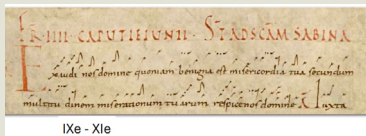 FR IIII CAPUT IEIUNII · STĀD SCĀM SABINA
Exaudi nos domine quoniam benigna est misericordia tua secundum
multitudinem miserationum tuarum respice nos domine Ā Iuxta
IXe - XIe